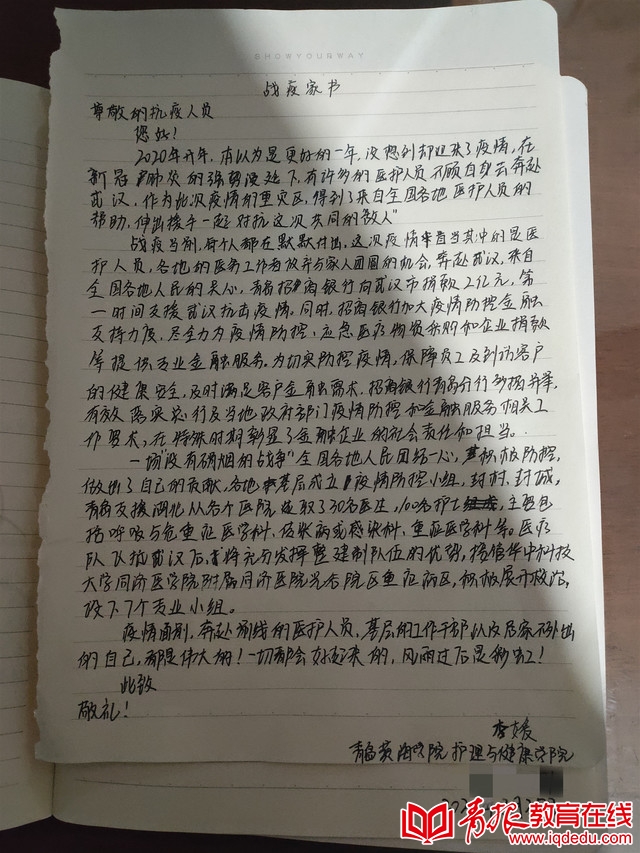 SHOWYOURWAY
战疫家书
尊敬的抗疫人员
您好!
2020年开年,本以为是更好的一年,没想到却迎来了疫情,在
新冠肺炎的强势漫延下,有许多的医护人员不顾自身去奔赴
武汉,作为此次疫情的重灾区,得到了来自全国各地医护人员的
帮助,伸出援手一起"对抗这次共同的敌人"
战疫当前,每个人都在默默付出,这次疫情首当其中的是医
护人员,各地的医务工作者放弃与家人团圆的机会,奔赴武汉,来自
全国各地人民的关心,有招商银行向武汉市捐款2亿元,第
一时间支援武汉抗击疫情。同时,招商银行加大疫情防控金融
支持力度,尽全力为疫情防控、应急医疗物资采购和企业捐款
等提供专业金融服务。为切实防控疫情,保障员工及到访客户
的健康安全,及时满足客户金融需求,招商银行青岛分行多措并举,
有效落实总行及当地政府部门疫情防控和金融服务相关工
作要求,在特殊时期彰显了金融企业的社会责任和担当。
一场"没有硝烟的战争"全国各地人民团结一心,积极防控,
做出了自己的贡献,各地基层成立疫情防控小组,封村,封城,
青岛支援湖北从各个医院选取了30名医生,100名护士,主要包
括呼吸与危重症医学科、传染病或感染科、重症医学科等。医疗
队飞抵武汉后,将充分发挥整建制队伍的优势,接管华中科技
大学同济医学院附属同济医院光谷院区重症病区,积极展开救治,
设下7个专业小组。
疫情面前,奔赴前线的医护人员,基层的工作干部以及居家不外出
的自己,都是伟大的!一切都会好起来的,风雨过后是彩虹!
此致
敬礼!
李媛
青岛黄海学院护理与健康学院
青报教育在线
www.iqdedu.com